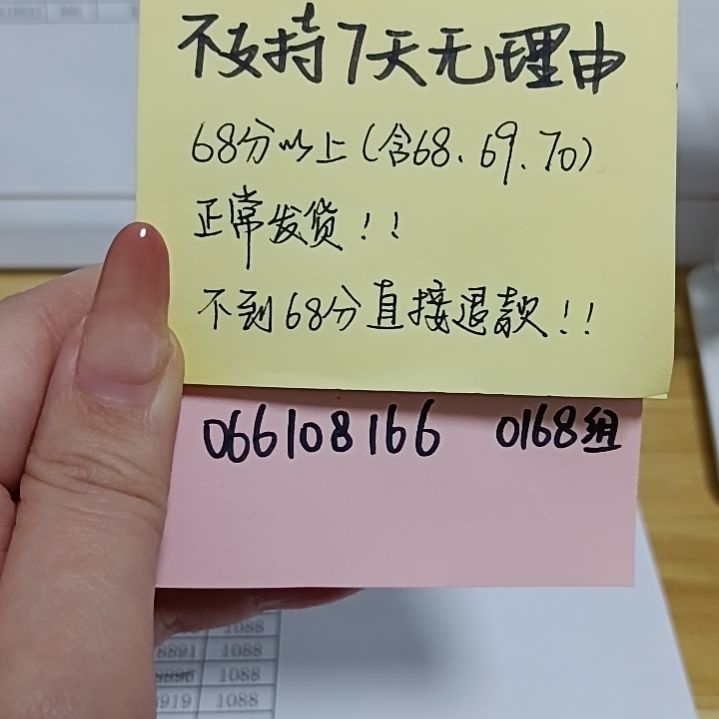 不支持7天无理由
68分以上(含68、69、70)
正常发货!!
不到68分直接退款!!
066108166 0168组
1088
8891 1088
8896 1088
8919 1088